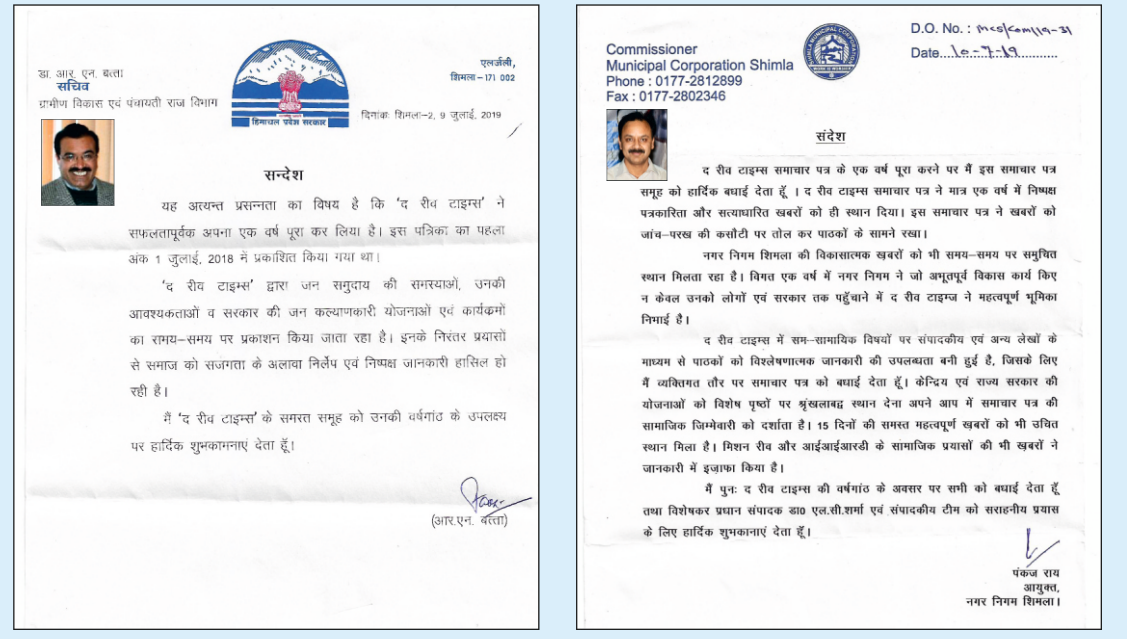 डा. आर. एन. बत्ता
सचिव
ग्रामीण विकास एवं पंचायती राज विभाग
हिमाचल प्रदेश सरकार
एलर्जली,
शिमला–171 002
दिनांकः शिमला–2, 9 जुलाई, 2019
सन्देश
यह अत्यन्त प्रसन्नता का विषय है कि 'द रीव टाइम्स' ने
सफलतापूर्वक अपना एक वर्ष पूरा कर लिया है। इस पत्रिका का पहला
अंक 1 जुलाई, 2018 में प्रकाशित किया गया था।
'द रीव टाइम्स' द्वारा जन समुदाय की समस्याओं, उनकी
आवश्यकताओं व सरकार की जन कल्याणकारी योजनाओं एवं कार्यक्रमों
का समय–समय पर प्रकाशन किया जाता रहा है। इनके निरंतर प्रयासों
से समाज को सजगता के अलावा निर्लेप एवं निष्पक्ष जानकारी हासिल हो
रही है।
मैं 'द रीव टाइम्स' के समस्त समूह को उनकी वर्षगांठ के उपलक्ष्य
पर हार्दिक शुभकामनाएं देता हूँ।
(आर.एन. बत्ता)
Commissioner
Municipal Corporation Shimla
Phone : 0177-2812899
Fax : 0177-2802346
SHIMLA MUNICIPAL CORPORATION
D.O. No. : MCS/Com/19-31
Date...10-7-19..........
संदेश
द रीव टाइम्स समाचार पत्र के एक वर्ष पूरा करने पर मैं इस समाचार पत्र
समूह को हार्दिक बधाई देता हूँ । द रीव टाइम्स समाचार पत्र ने मात्र एक वर्ष में निष्पक्ष
पत्रकारिता और सत्याधारित खबरों को ही स्थान दिया। इस समाचार पत्र ने खबरों को
जांच–परख की कसौटी पर तोल कर पाठकों के सामने रखा।
नगर निगम शिमला की विकासात्मक ख़बरों को भी समय–समय पर समुचित
स्थान मिलता रहा है। विगत एक वर्ष में नगर निगम ने जो अभूतपूर्व विकास कार्य किए
न केवल उनको लोगों एवं सरकार तक पहुँचाने में द रीव टाइम्ज ने महत्वपूर्ण भूमिका
निभाई है।
द रीव टाइम्स में सम–सामायिक विषयों पर संपादकीय एवं अन्य लेखों के
माध्यम से पाठकों को विश्लेषणात्मक जानकारी की उपलब्धता बनी हुई है, जिसके लिए
मैं व्यक्तिगत तौर पर समाचार पत्र को बधाई देता हूँ। केन्द्रिय एवं राज्य सरकार की
योजनाओं को विशेष पृष्ठों पर श्रृंखलाबद्व स्थान देना अपने आप में समाचार पत्र की
सामाजिक जिम्मेवारी को दर्शाता है। 15 दिनों की समस्त महत्वपूर्ण ख़बरों को भी उचित
स्थान मिला है। मिशन रीव और आईआईआरडी के सामाजिक प्रयासों की भी ख़बरों ने
जानकारी में इज़ाफा किया है।
मैं पुनः द रीव टाइम्स की वर्षगांठ के अवसर पर सभी को बधाई देता हूँ
तथा विशेषकर प्रधान संपादक डा0 एल.सी.शर्मा एवं संपादकीय टीम को सराहनीय प्रयास
के लिए हार्दिक शुभकानाएं देता हूँ।
पंकज राय
आयुक्त,
नगर निगम शिमला।